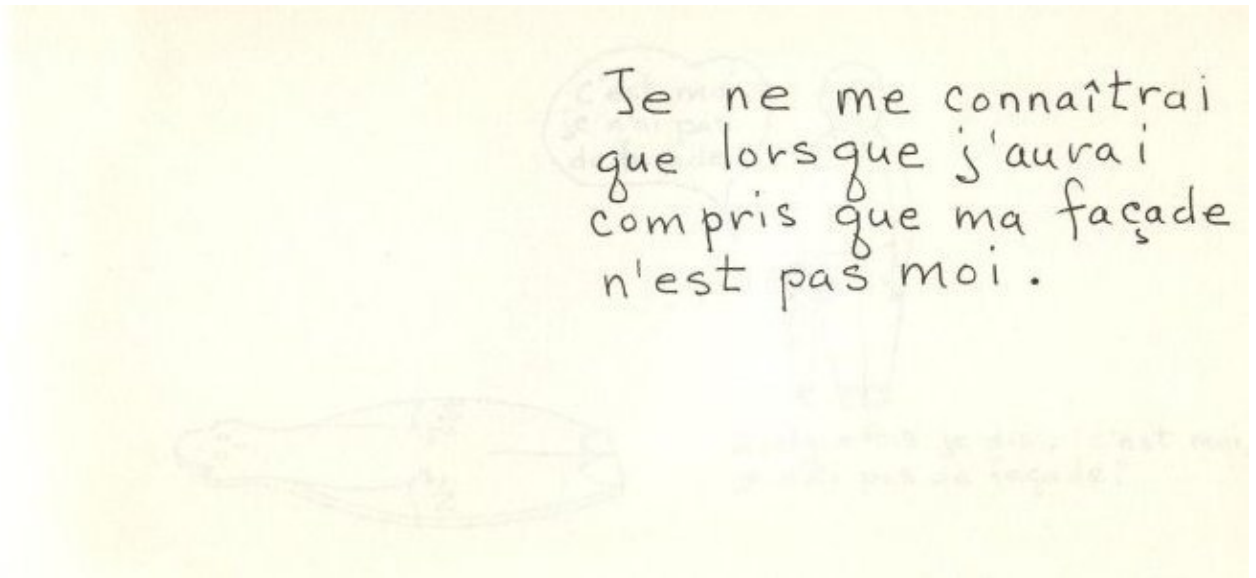 Je ne me connaîtrai
que lorsque j'aurai
compris que ma façade
n'est pas moi.